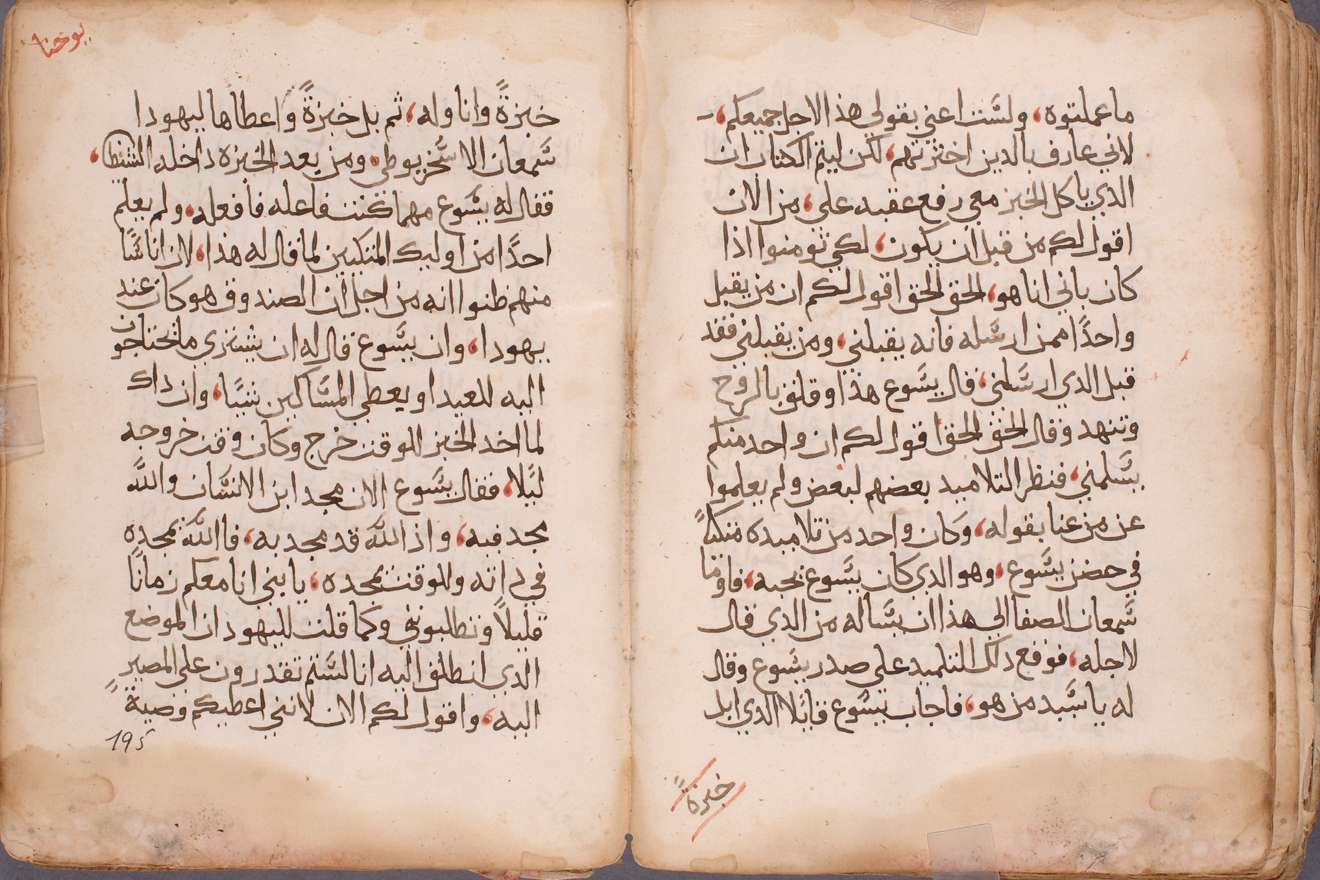 ما عملتوه، ولست اعني بقولي هذا لاجل جميعكم،
لاني عارف بالدين اخترتهم، لكن ليتم الكتاب ان
الذي ياكل الخبز معي رفع عقبه علي، من الان
اقول لكم من قبل ان يكون، لكي تومنوا اذا
كان باني انا هو، الحق الحق اقول لكم ان من يقبل
واحدًا ممن ارسله فانه يقبلني، ومن يقبلني فقد
قبل الدي ارسلني، قال يسوع هذا وقلق بالروح
وتنهد وقال الحق الحق اقول لكم ان واحد منكم
يسلمني، فنظر التلاميد بعضهم لبعض ولم يعلموا
عن من عنا بقوله، وكان واحد من تلاميده متكيًا
في حضن يسوع، وهو الدي كان يسوع يحبه، فاوما
سمعان الصفا الي هذا ان يساله من الذي قال
لاجله، فوقع دلك التلميد علي صدر يسوع وقال
له يا سيد من هو، فاجاب يسوع قايلا الدي ابل
خبزةً
يوحنا
خبزةً واناوله، ثم بل خبزةً واعطاها ليهودا
سمعان الاسخريوطي، ومن بعد الخبزه داخله الشيطان،
فقال له يسوع مهما كنت فاعله فافعله، ولم يعلم
احدًا من اوليك المتكيين لما قال له هذا، لان اناسًا
منهم ظنوا انه من اجل ان الصندوق هو كان عند
يهودا، وان يسوع قال له ان يشتري ما يحتاجون
اليه للعيد او يعطي المساكين شيًا، وان داك
لما اخد الخبز للوقت خرج وكان وقت خروجه
ليلا، فقال يسوع الان مجد ابن الانسان والله
مجد فيه، واذ الله قد مجد به، فاالله يمجده
في داته وللوقت يمجده، يا بني انا معكم زمانًا
قليلاً وتطلبوني وكما قلت لليهود ان الموضع
الدي انطلق اليه انا لستم تقدرون علي المصير
اليه، واقول لكم الان لانني اعطيكم وصيةً
195